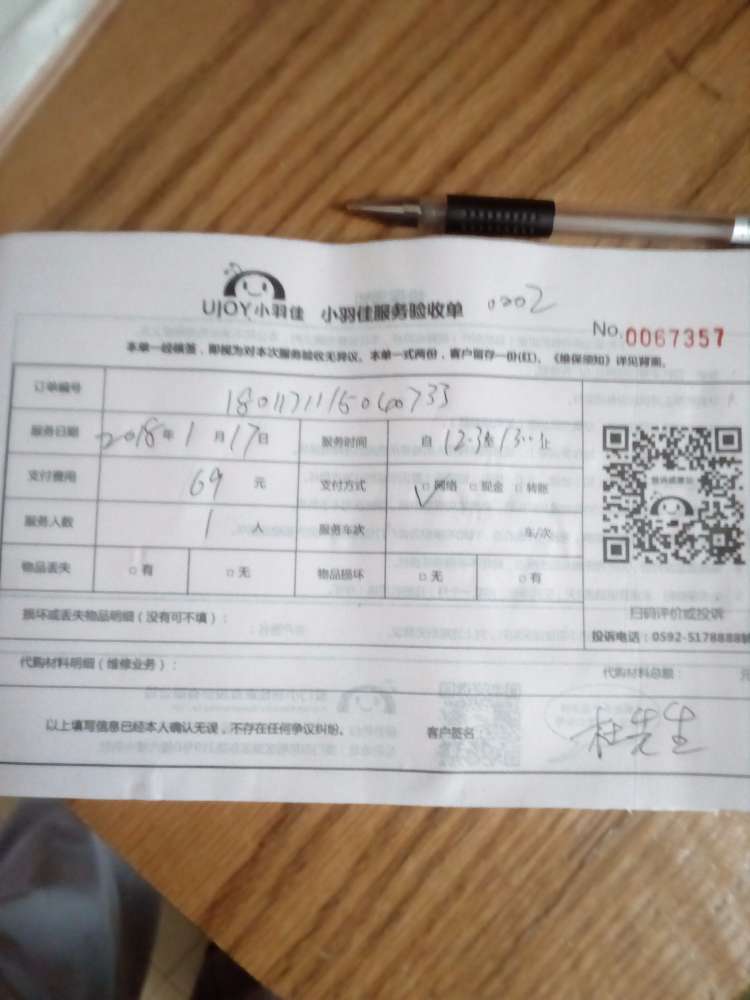 UJOY小羽佳 小羽佳服务验收单 0002
No.0067357
本单一经领签，即视为对本次服务验收无异议。本单一式两份，客户留存一份(红)。《维保须知》详见背面。
订单编号
服务日期 2018年1月17日 服务时间 自12:3至13:00止
支付费用 69元 支付方式 □网络 □现金 □转账
服务人数 1人 服务车次 车/次
物品丢失 □有 □无 物品损坏 □无 □有
损坏或丢失物品明细（没有可不填）：
扫码评价或投诉
投诉电话：0592-5178888
代购材料明细（维修业务）： 代购材料总额：
以上填写信息已经本人确认无误，不存在任何争议纠纷。 客户签名 杜先生